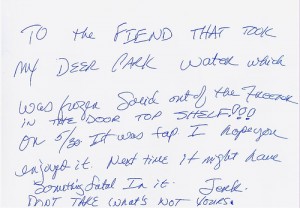 TO the FIEND THAT TOOK
my DEER PARK water which
was frozen Solid out of the FREEZER
IN THE DOOR TOP SHELF!!!
ON 5/30 It was tap I hope you
enjoyed it. Next time it might have
Something fatal In it. Jerk.
DO NOT TAKE WHAT'S NOT YOURS.